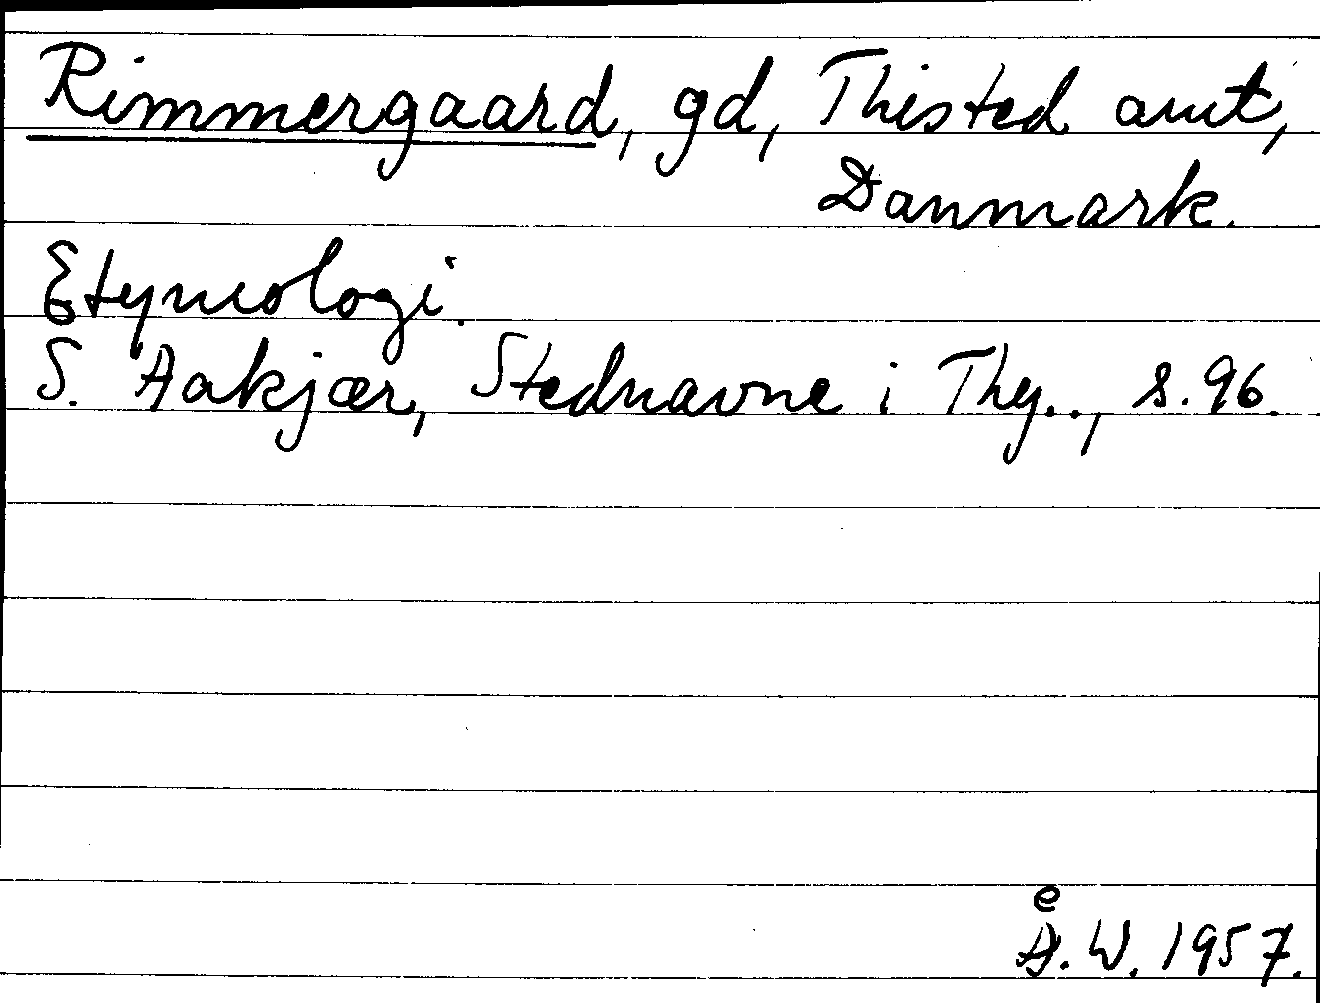 Rimmergaard, gd, Thisted amt,
Danmark.
Etymologi.
S. Aakjær, Stednavne i Thy.., s. 96.
Å. W. 1957.